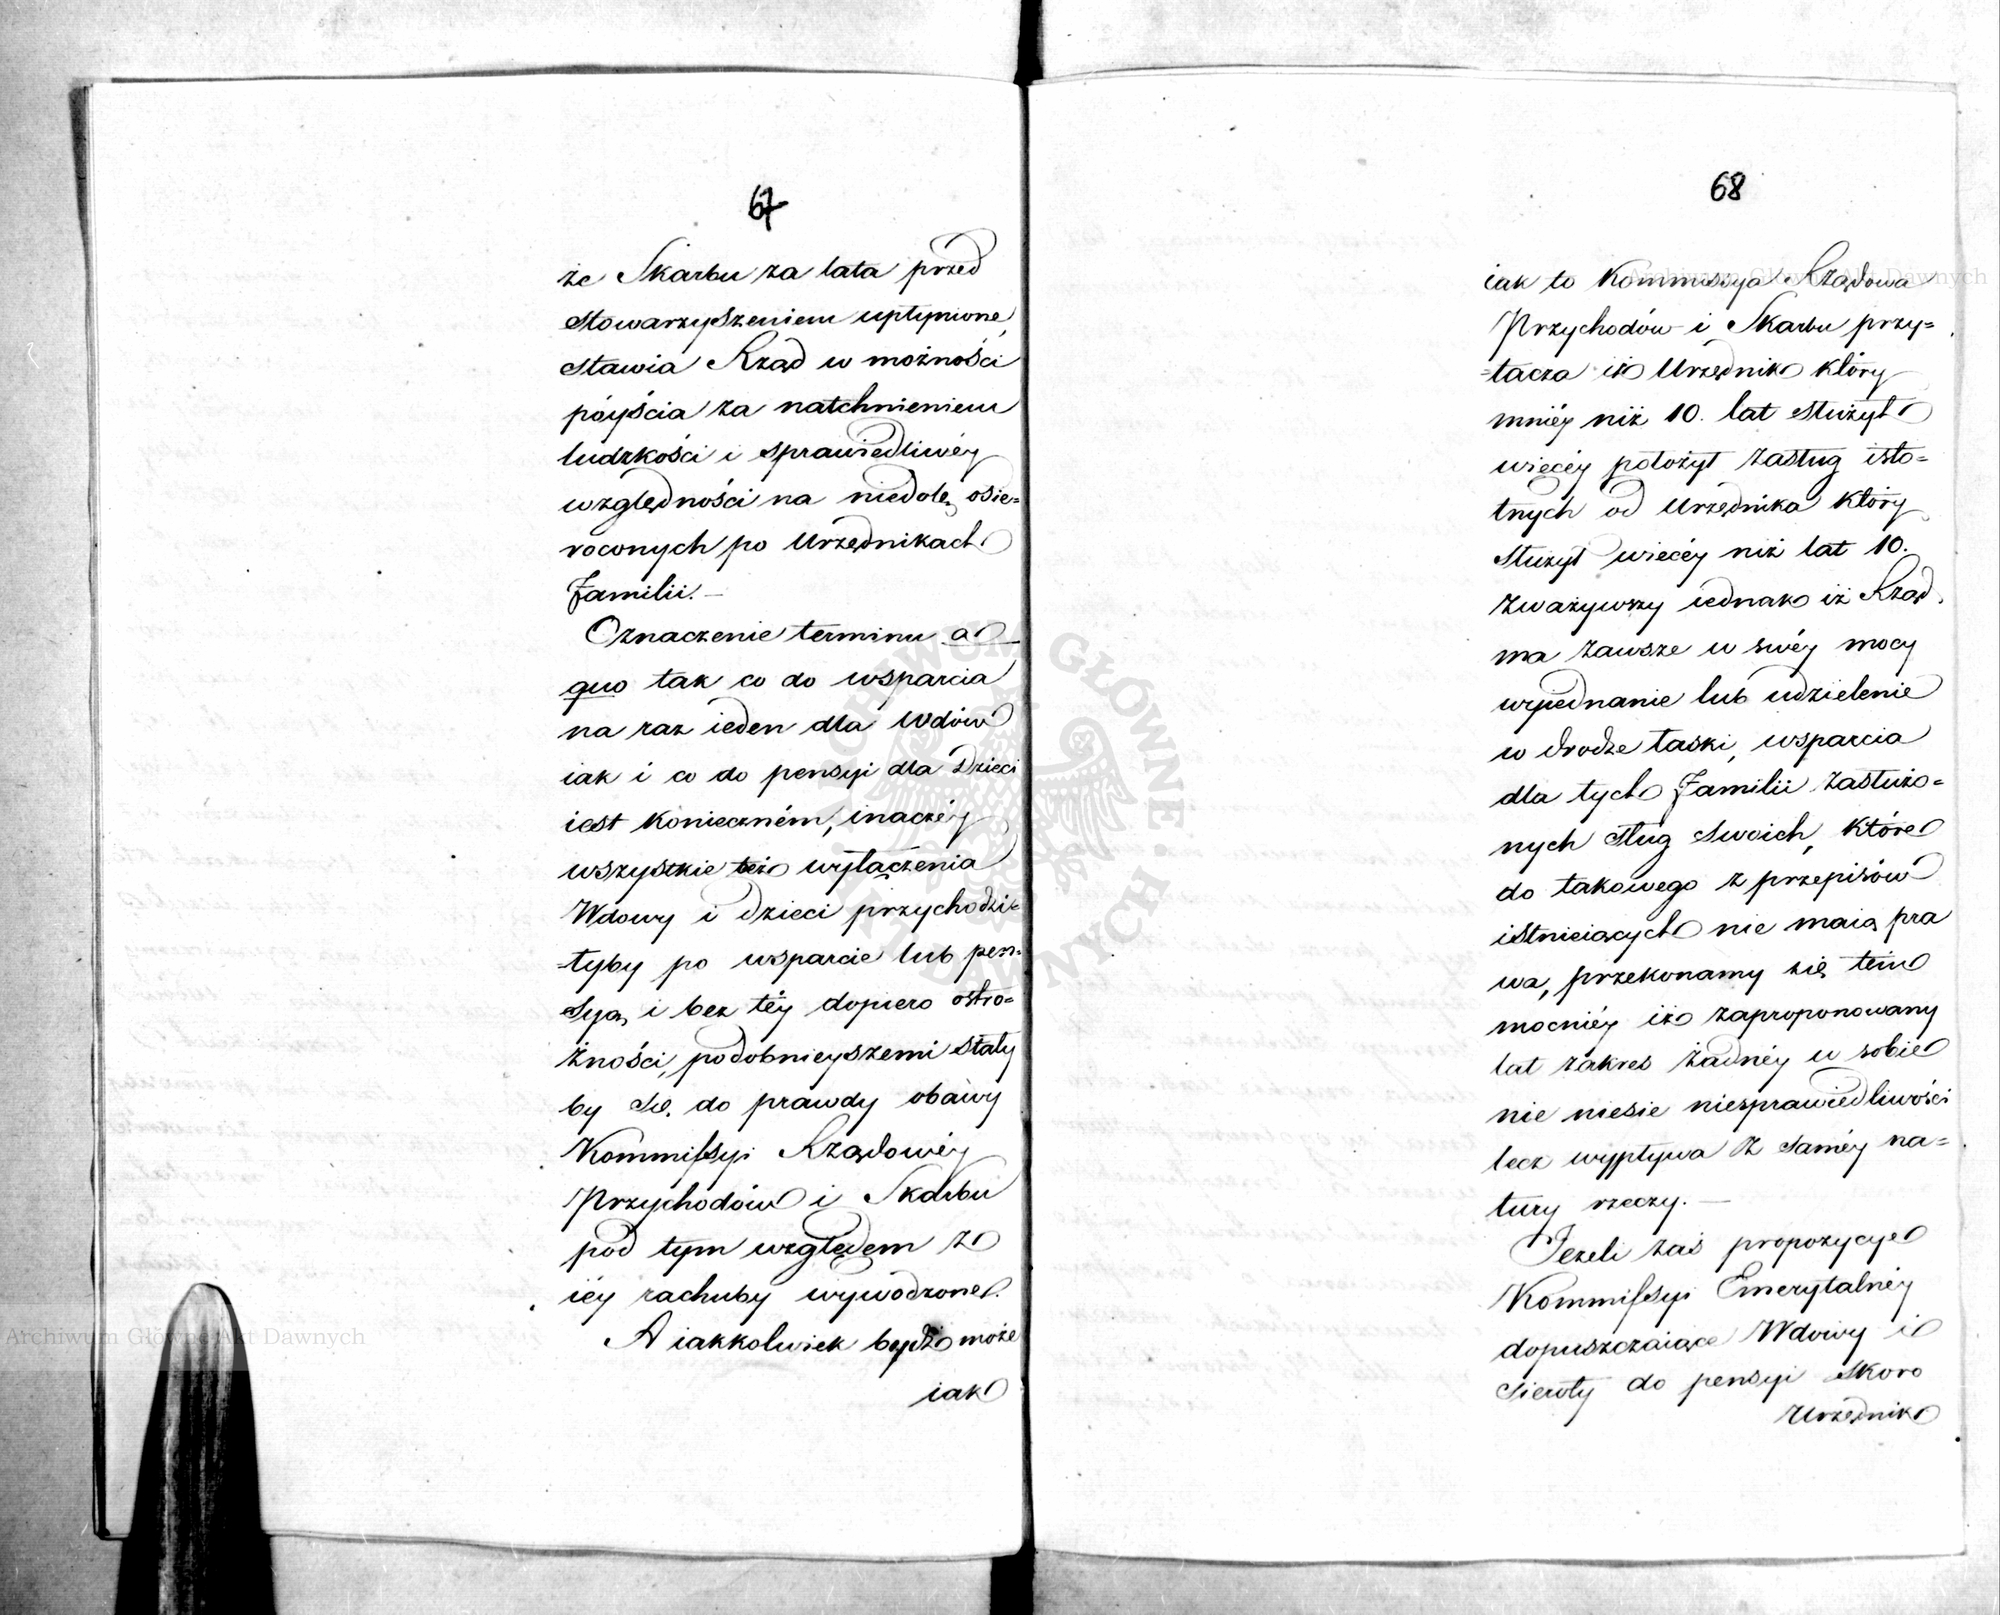 67
że Skarbu za lata przed
stowarzyszeniem upłynione,
stawia Rząd w możności
póyścia za natchnieniem
ludzkości i sprawiedliwéy
względności na niedolę osie=
roconych po Urzędnikach
Familii. —
Oznaczenie terminu a
quo tak co do wsparcia
na raz ieden dla Wdów
iak i co do pensyi dla Dzieci
iest konieczném, inaczéy
wszystkie też wyłączenia
Wdowy i dzieci przychodzi=
=łyby po wsparcie lub pen=
syą, i bez téy dopiero ostro=
żności, podobnieyszemi stały
by się do prawdy obawy
Kommissyi Rządowéy
Przychodów i Skarbu
pod tym względem z
iéy rachuby wywodzone.
A iakkolwiek bydź może
iak
68
iak to Kommissya Rządowa
Przychodów i Skarbu przy=
=tacza iż Urzędnik który
mniéy niż 10. lat służył
więcéy położył zasług isto=
tnych od Urzędnika który
służył więcéy niż lat 10.
zważywszy iednak iż Rząd
ma zawsze w swéy mocy
wyiednanie lub udzielenie
w drodze łaski, wsparcia
dla tych Familii zasłużo=
nych sług swoich, które
do takowego z przepisów
istnieiących nie maią pra
wa, przekonamy się tem
mocniéy iż zaproponowany
lat zakres żadnéy w sobie
nie niesie niesprawiedliwości
lecz wypływa z saméy na=
tury rzeczy. —
Jeżeli zaś propozycye
Kommissyi Emerytalnéy
dopuszczaiące Wdowy i
Sieroty do pensyi skoro
Urzędnik
Archiwum Główne Akt Dawnych
Archiwum Główne Akt Dawnych
ARCHIWUM GŁÓWNE AKT DAWNYCH